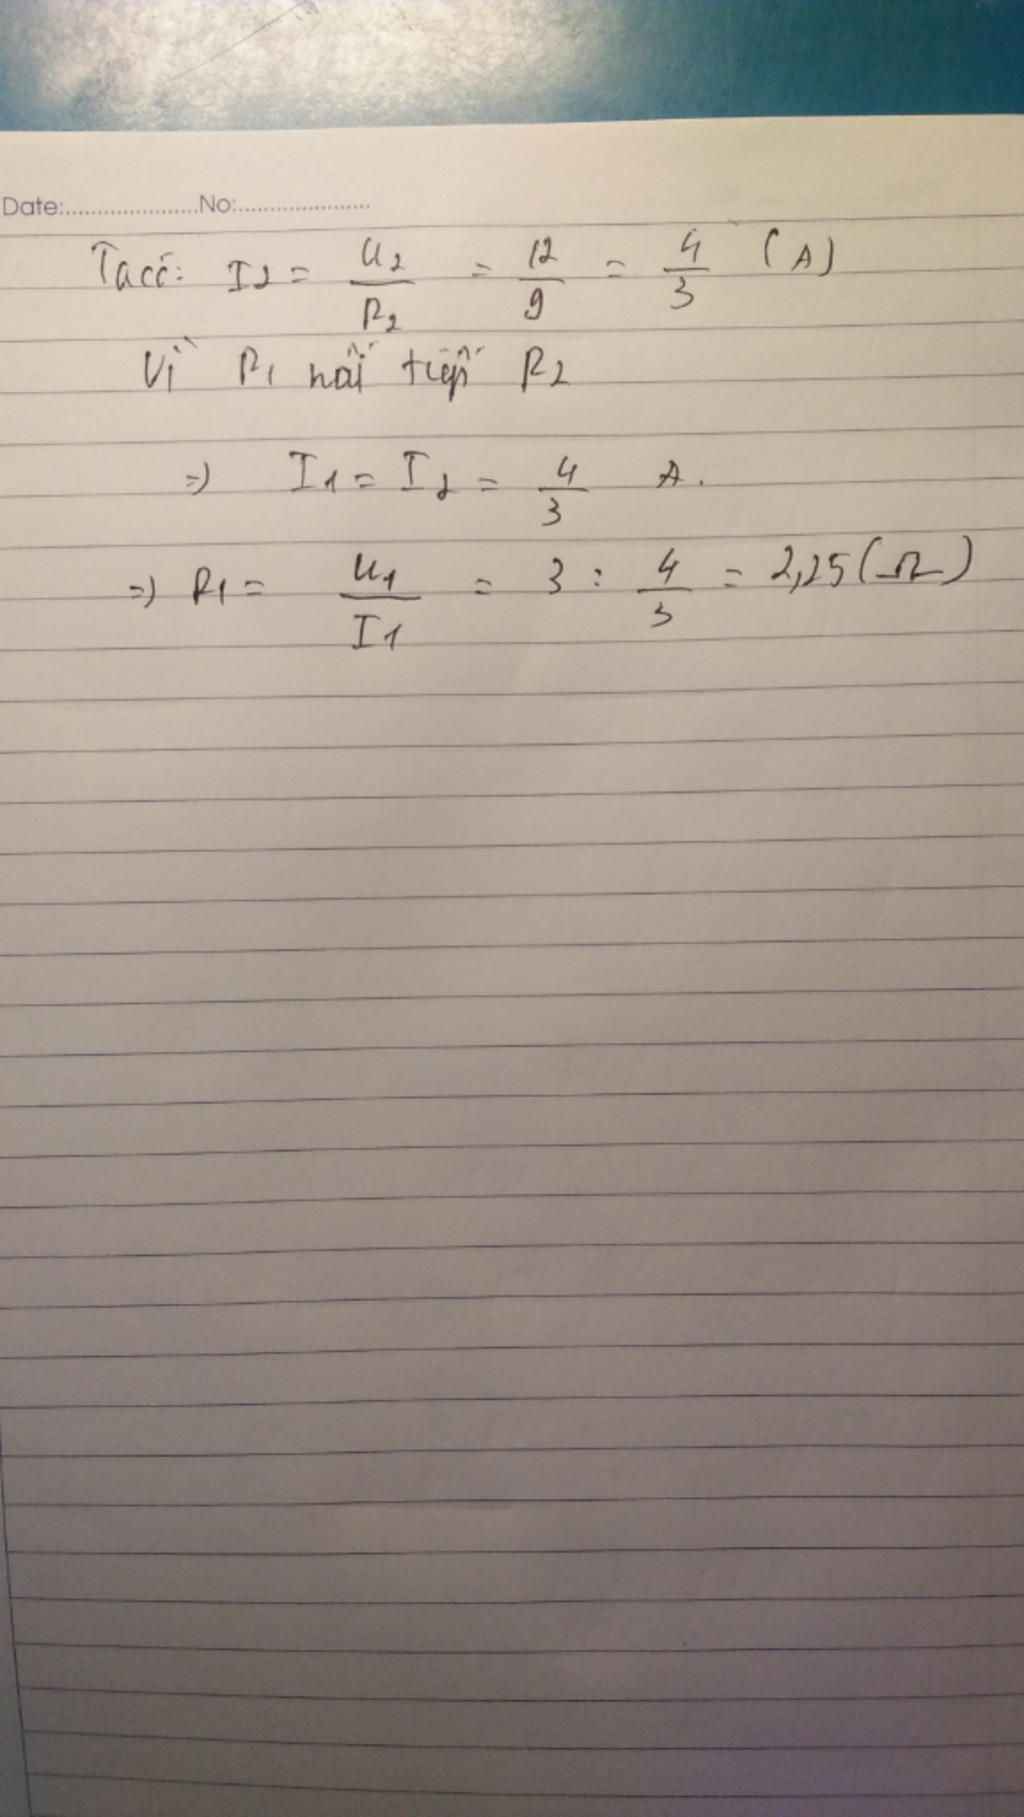 Date:......................No:......................
Ta có: I2 = U2/R2 = 12/9 = 4/3 (A)
Vì R1 nối tiếp R2
=> I1 = I2 = 4/3 A.
=> R1 = U1/I1 = 3 : 4/3 = 2,25 (Ω)